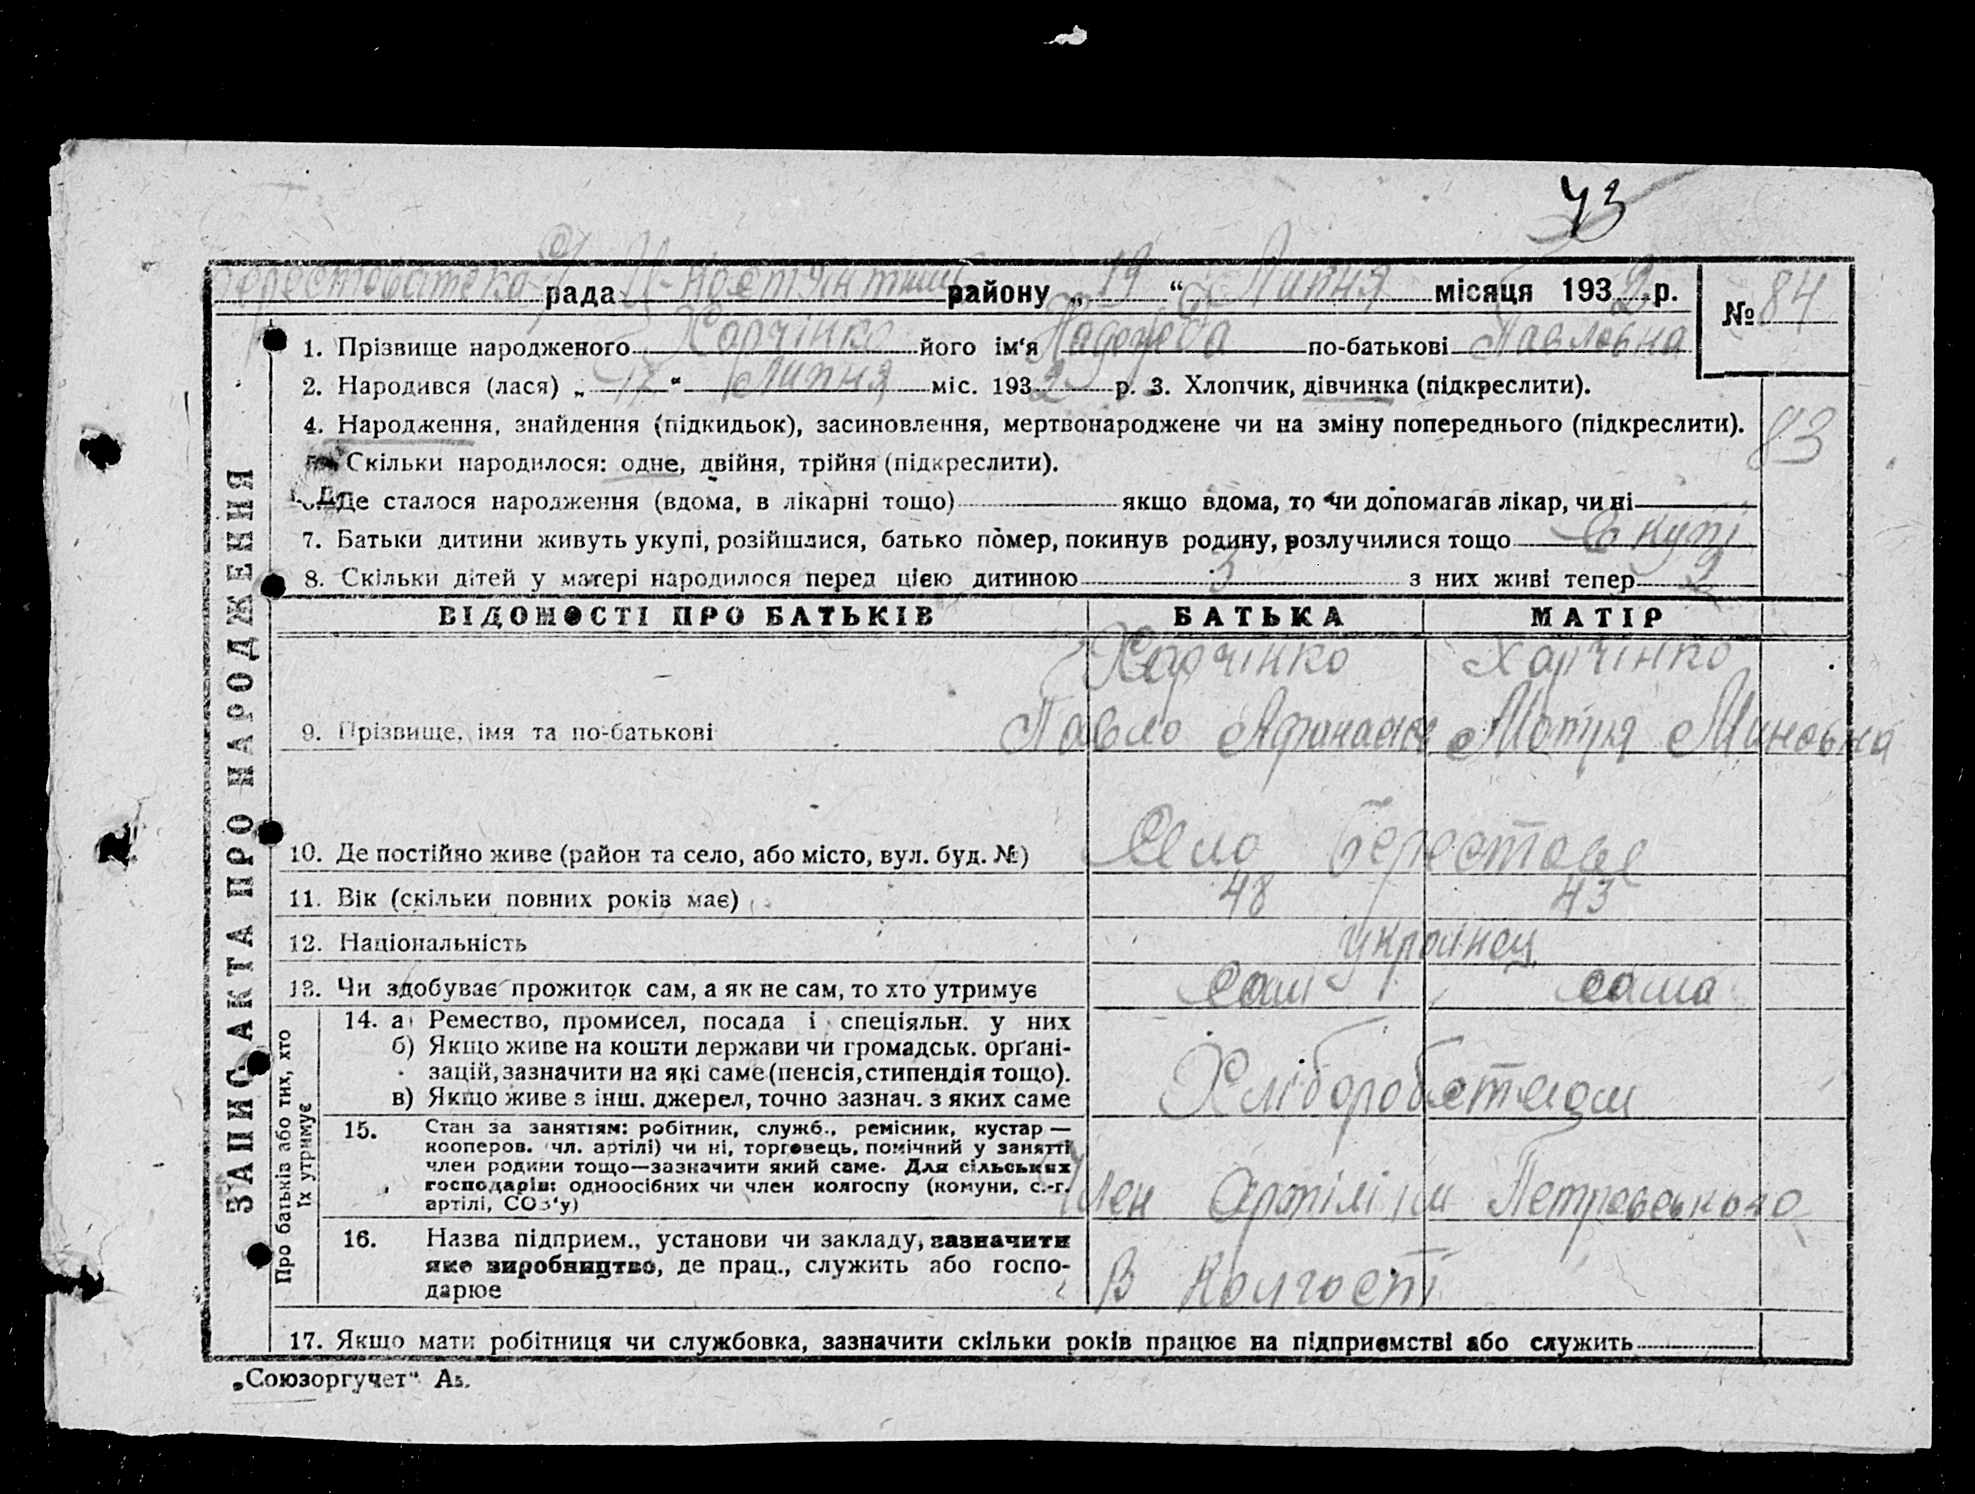 43
Берестоватська рада района району „ 19 “ Липня місяця 1932 р.
№ 84
1. Прізвище народженого Харчінко його ім'я Надежда по-батькові Павловна
2. Народився (лася) „ 17 “ Липня міс. 1932 р. 3. Хлопчик, дівчинка (підкреслити).
4. Народження, знайдення (підкидьок), засиновлення, мертвонароджене чи на зміну попереднього (підкреслити).
83
Скільки народилося: одне, двійня, трійня (підкреслити).
Де сталося народження (вдома, в лікарні тощо) якщо вдома, то чи допомагав лікар, чи ні
7. Батьки дитини живуть укупі, розійшлися, батько помер, покинув родину, розлучилися тощо в купі
8. Скільки дітей у матері народилося перед цією дитиною 3 з них живі тепер 2
ЗАПИС АКТА ПРО НАРОДЖЕННЯ
ВІДОМОСТІ ПРО БАТЬКІВ БАТЬКА МАТІР
Харчінко Харчінко
9. Прізвище, імя та по-батькові Павло Афанасіє Мотря Миновна
10. Де постійно живе (район та село, або місто, вул. буд. №) Село Берестове
11. Вік (скільки повних років має) 48 43
12. Національність українец
13. Чи здобуває прожиток сам, а як не сам, то хто утримує Сам сама
Про батьків або тих, хто
їх утримує
14. а) Ремество, промисел, посада і спеціяльн. у них
б) Якщо живе на кошти держави чи громадськ. орґані-
зацій, зазначити на які саме (пенсія, стипендія тощо).
в) Якщо живе з інш. джерел, точно зазнач. з яких саме
Хліборобством
15. Стан за заняттям: робітник, служб., ремісник, кустар —
кооперов. чл. артілі) чи ні, торговець, помічний у занятті
член родини тощо—зазначити який саме. Для сільських
господарів: одноосібних чи член колгоспу (комуни, с.-г.
артілі, СОЗ'у)
Член Артілі ім Петровського
16. Назва підприєм., установи чи закладу, зазначити
яке виробництво, де прац., служить або госпо-
дарює
В Колгоспі
17. Якщо мати робітниця чи службовка, зазначити скільки років працює на підприємстві або служить
„Союзоргучет“